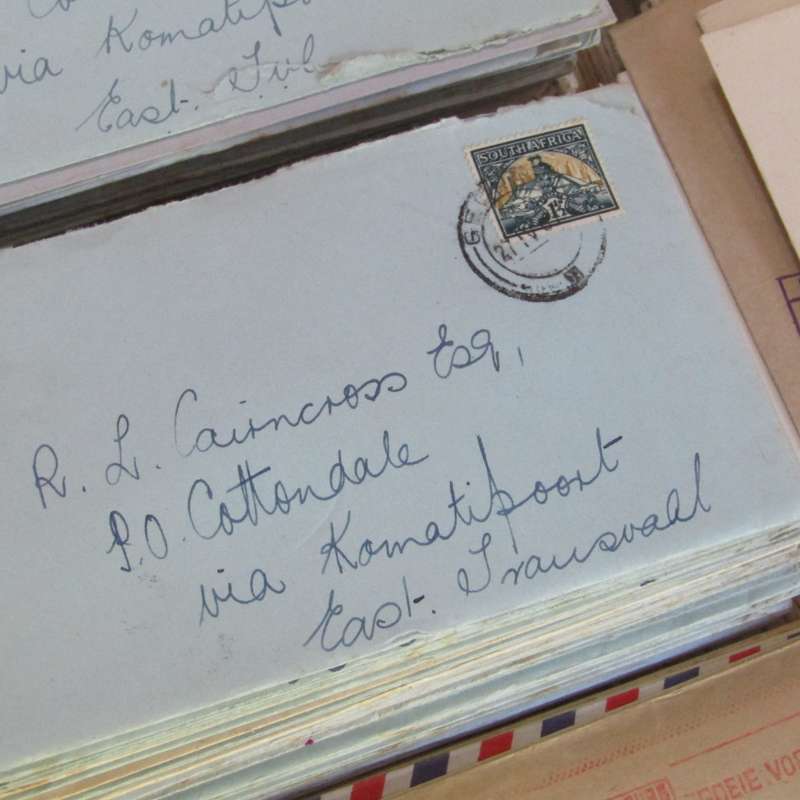 via Komatipo
East. Tvl
SOUTH AFRICA
1½
GE
27 IV
R. L. Cairncross Esq,
P.O. Cottondale
via Komatipoort
East. Transvaal